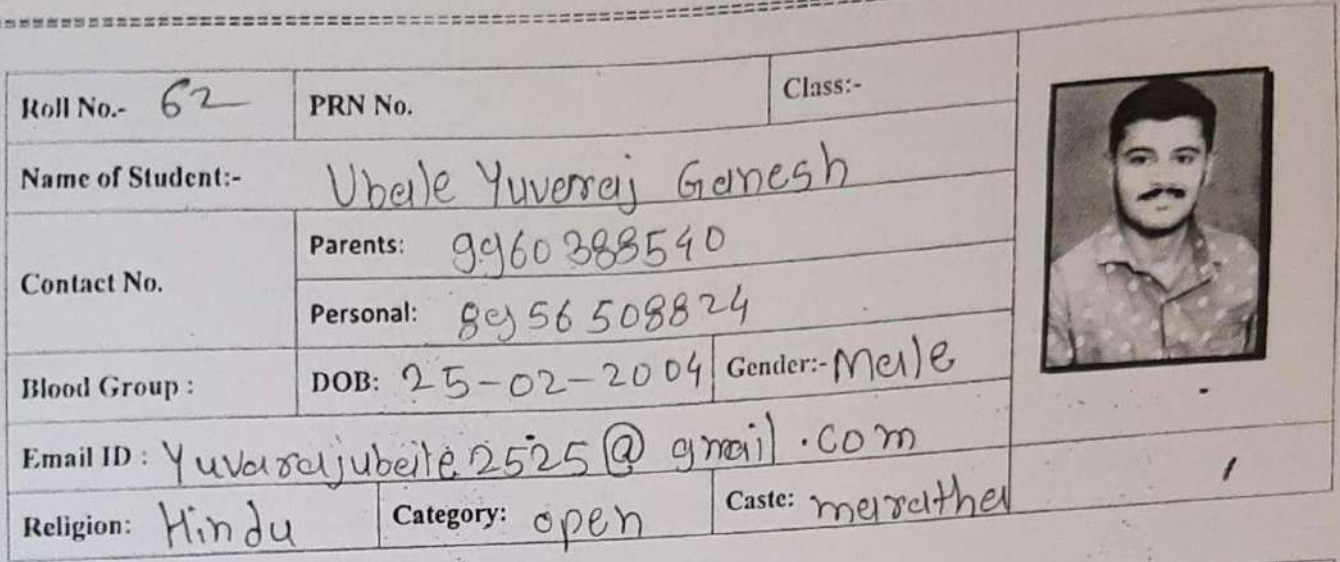 Roll No.- 62 PRN No. Class:-
Name of Student:- Ubale Yuvaraj Ganesh
Contact No.
Parents: 9960388540
Personal: 8956508824
Blood Group : DOB: 25-02-2004 Gender:- Male
Email ID : Yuvarajubale2525@gmail.com
Religion: Hindu Category: open Caste: maratha